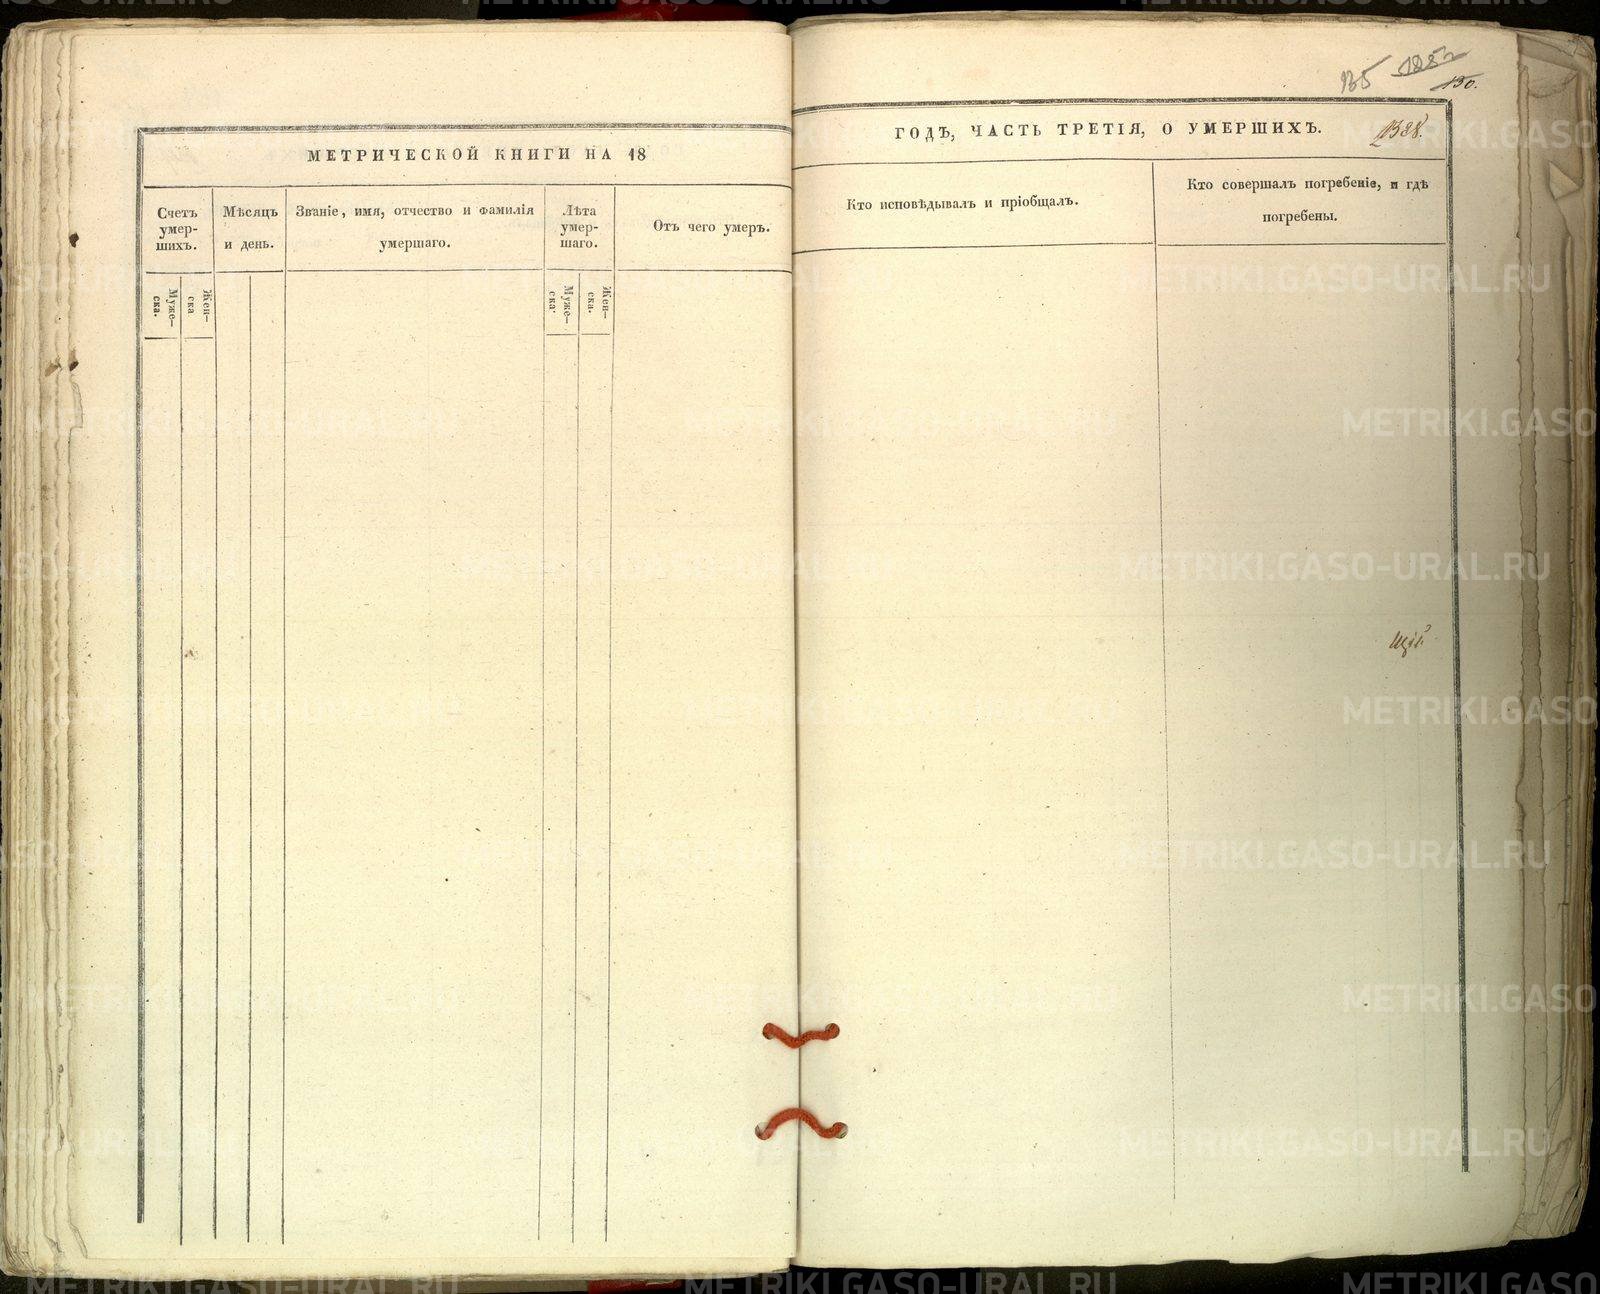 135
130.
МЕТРИЧЕСКОЙ КНИГИ НА 18
ГОДЪ, ЧАСТЬ ТРЕТІЯ, О УМЕРШИХЪ.
1388.
Счетъ умер-
шихъ.
Мѣсяцъ
и день.
Званіе, имя, отчество и фамилія
умершаго.
Лѣта
умер-
шаго.
Отъ чего умеръ.
Кто исповѣдывалъ и пріобщалъ.
Кто совершалъ погребеніе, и гдѣ
погребены.
Муже-
ска.
Жен-
ска
Муже-
ска.
Жен-
ска.
METRIKI.GASO-URAL.RU